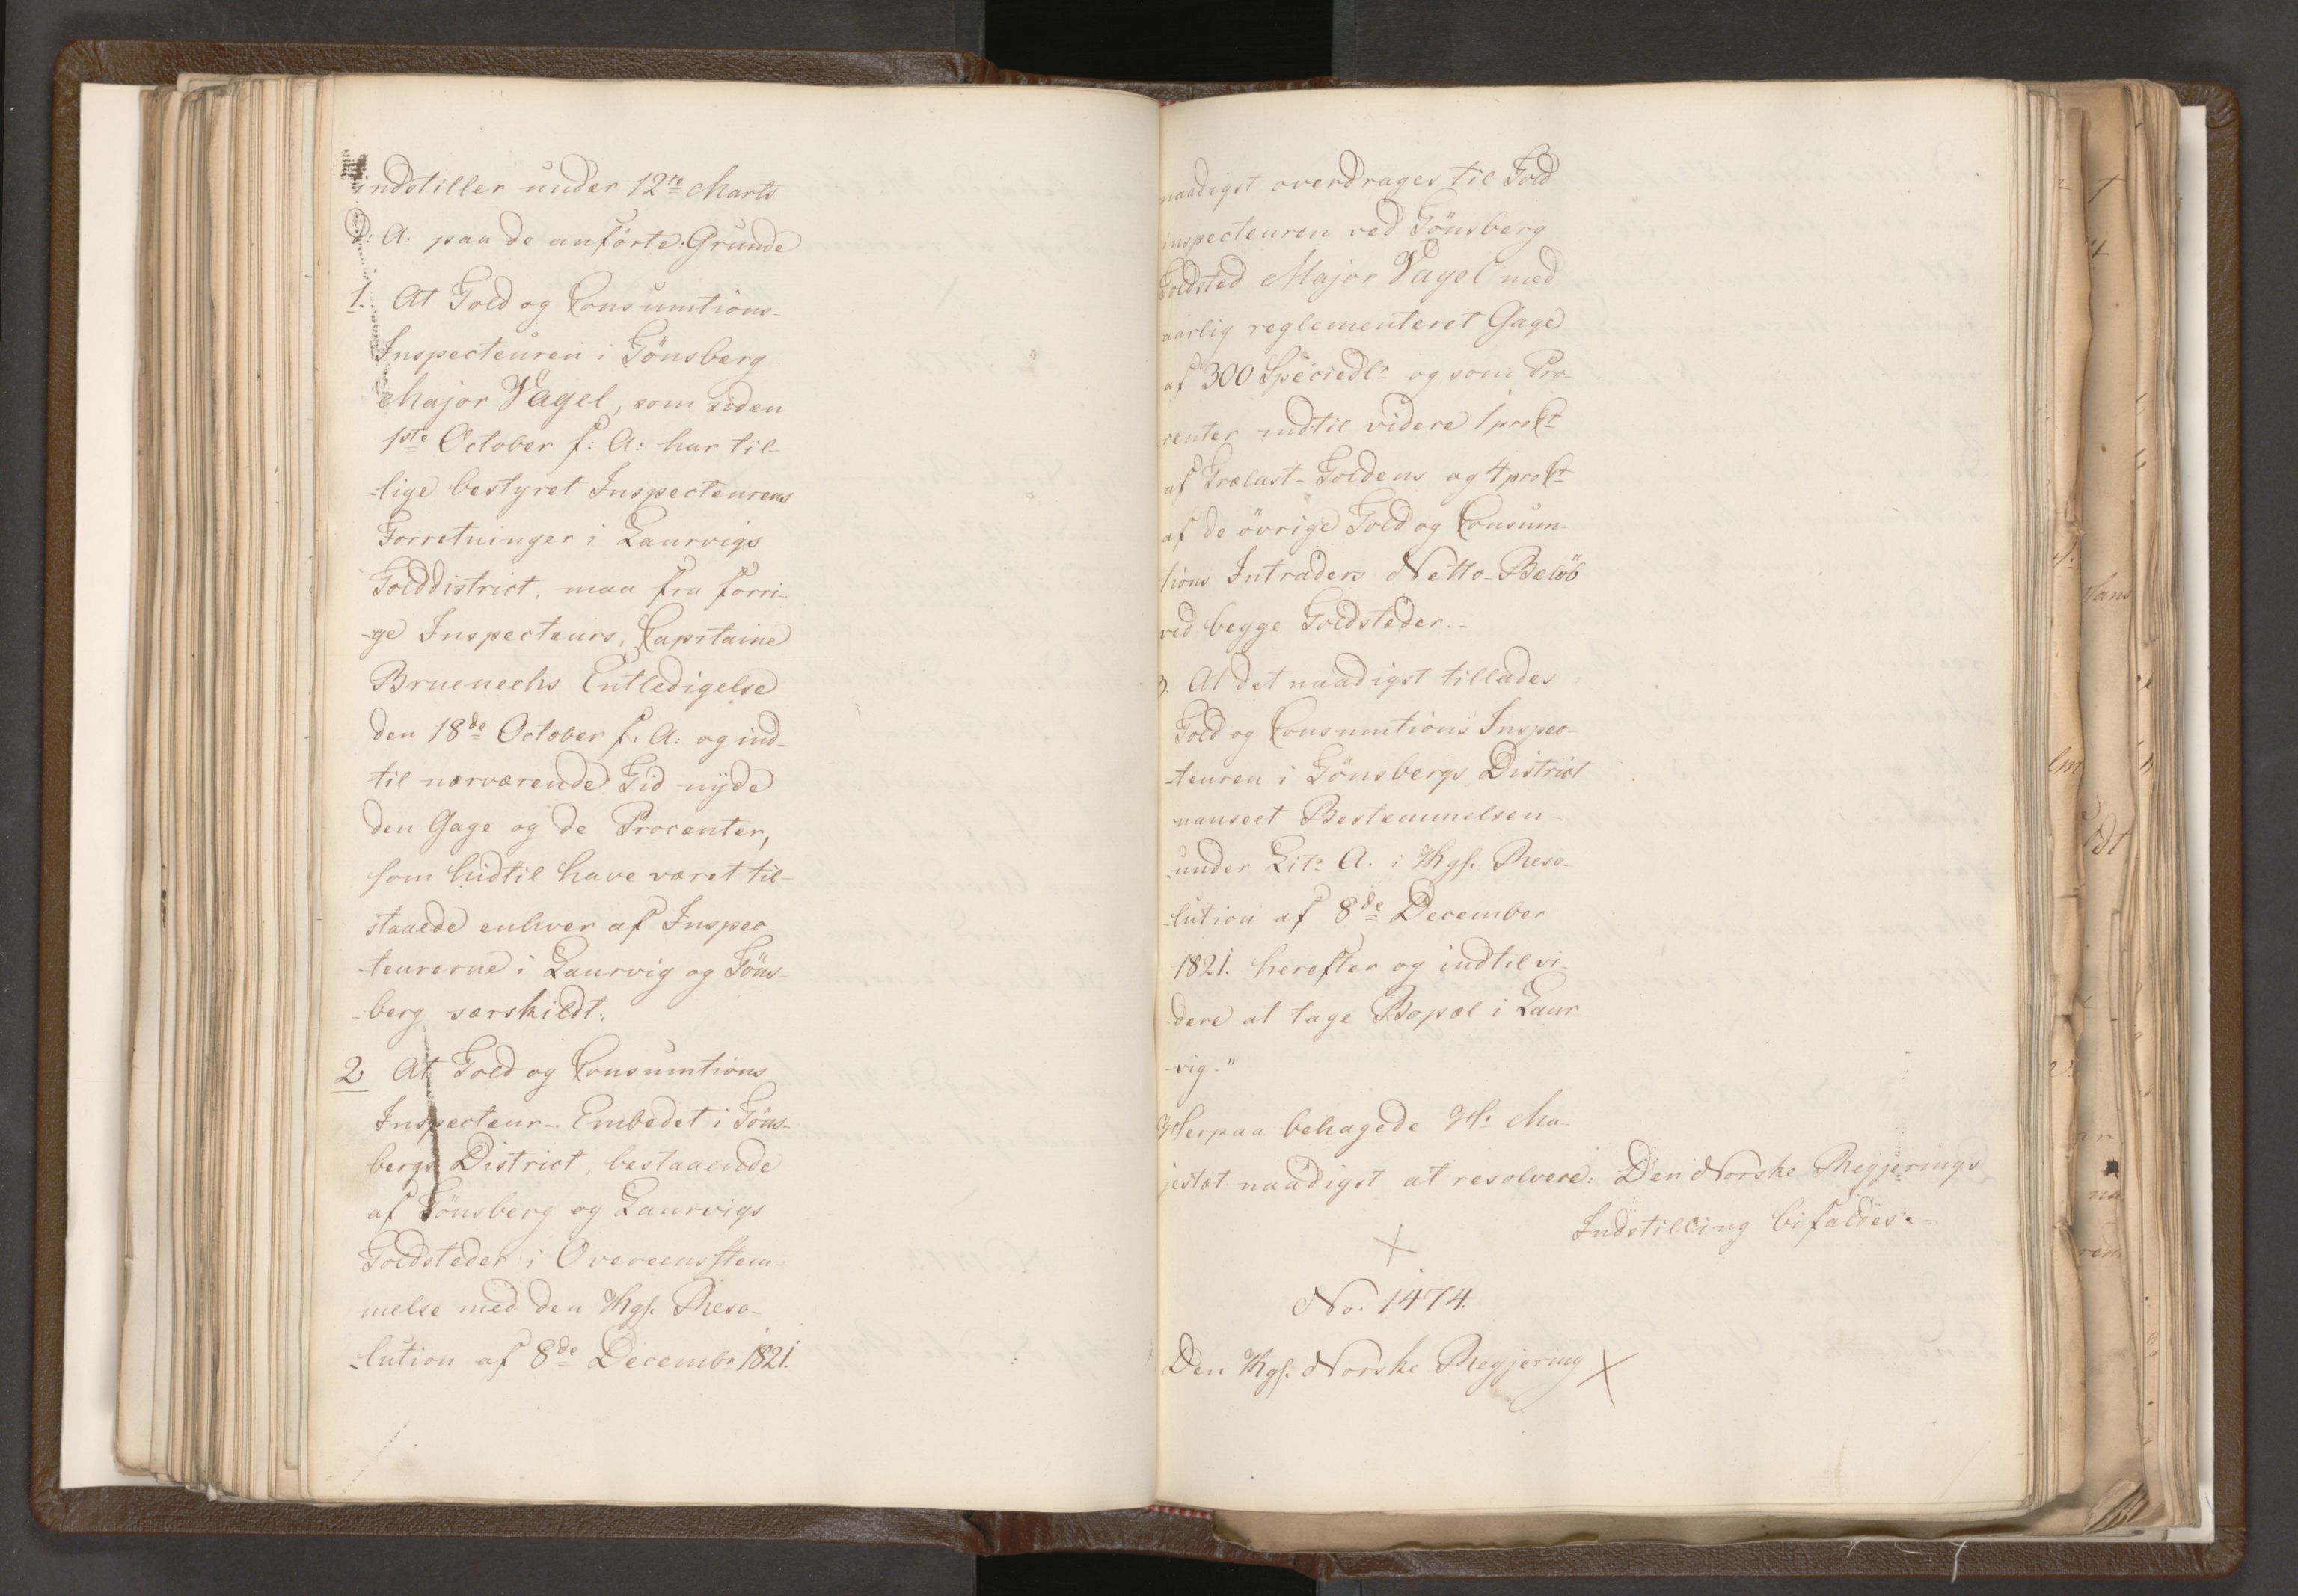 indstiller under 12te Marts
d: A: paa de anförte Grunde
1. At Told og Consumtions-
Inspecteuren i Tönsberg
Major Vagel, som siden
1ste October f: A: har til-
-lige bestyret Inspecteurens
Forretninger i Laurvigs
Tolddistrict, maa fra forri-
-ge Inspecteurs, Capitaine
Bruenechs Entledigelse
den 18de October f: A: og ind-
-til nærværende Tid nÿde
den Gage og de Procenter,
som hidtil have været til-
staaede enhver af Inspec-
-teurerne i Laurvig og Töns-
-berg særskildt:
2 At Told og Consumtions
Inspecteur-Embedet i Töns-
bergs District, bestaaende
af Tönsberg og Laurvigs
Toldsteder i Overeensstem-
melse med den Kgs. Reso-
-lution af 8de Decembr 1821.
naadigst overdrages til Told
inspecteuren ved Tönsberg
Toldsted Major Vagel med
aarlig reglementeret Gage
af 300 Speciedlr og som Pro-
center indtil videre 1 pro Ct
af Trælast-Toldens og 4 pro Ct
af de övrige Told og Consum-
tions Intraders Netto-Belöb
ved begge Toldsteder.-
3. At det naadigst tillades
Told og Consumtions Inspec-
-teuren i Tönsbergs District
uanseet Bestemmelsen
under Litr A. i Kgs. Reso-
-lution af 8de December
1821. herefter og indtil vi-
dere at tage Bopæl i Laur
-vig."
Herpaa behagede H: Ma-
jestæt naadigst at resolvere: Den Norske Regjerings
Indstilling bifaldes:-
No. 1474.
Den Kgs. Norske Regjering